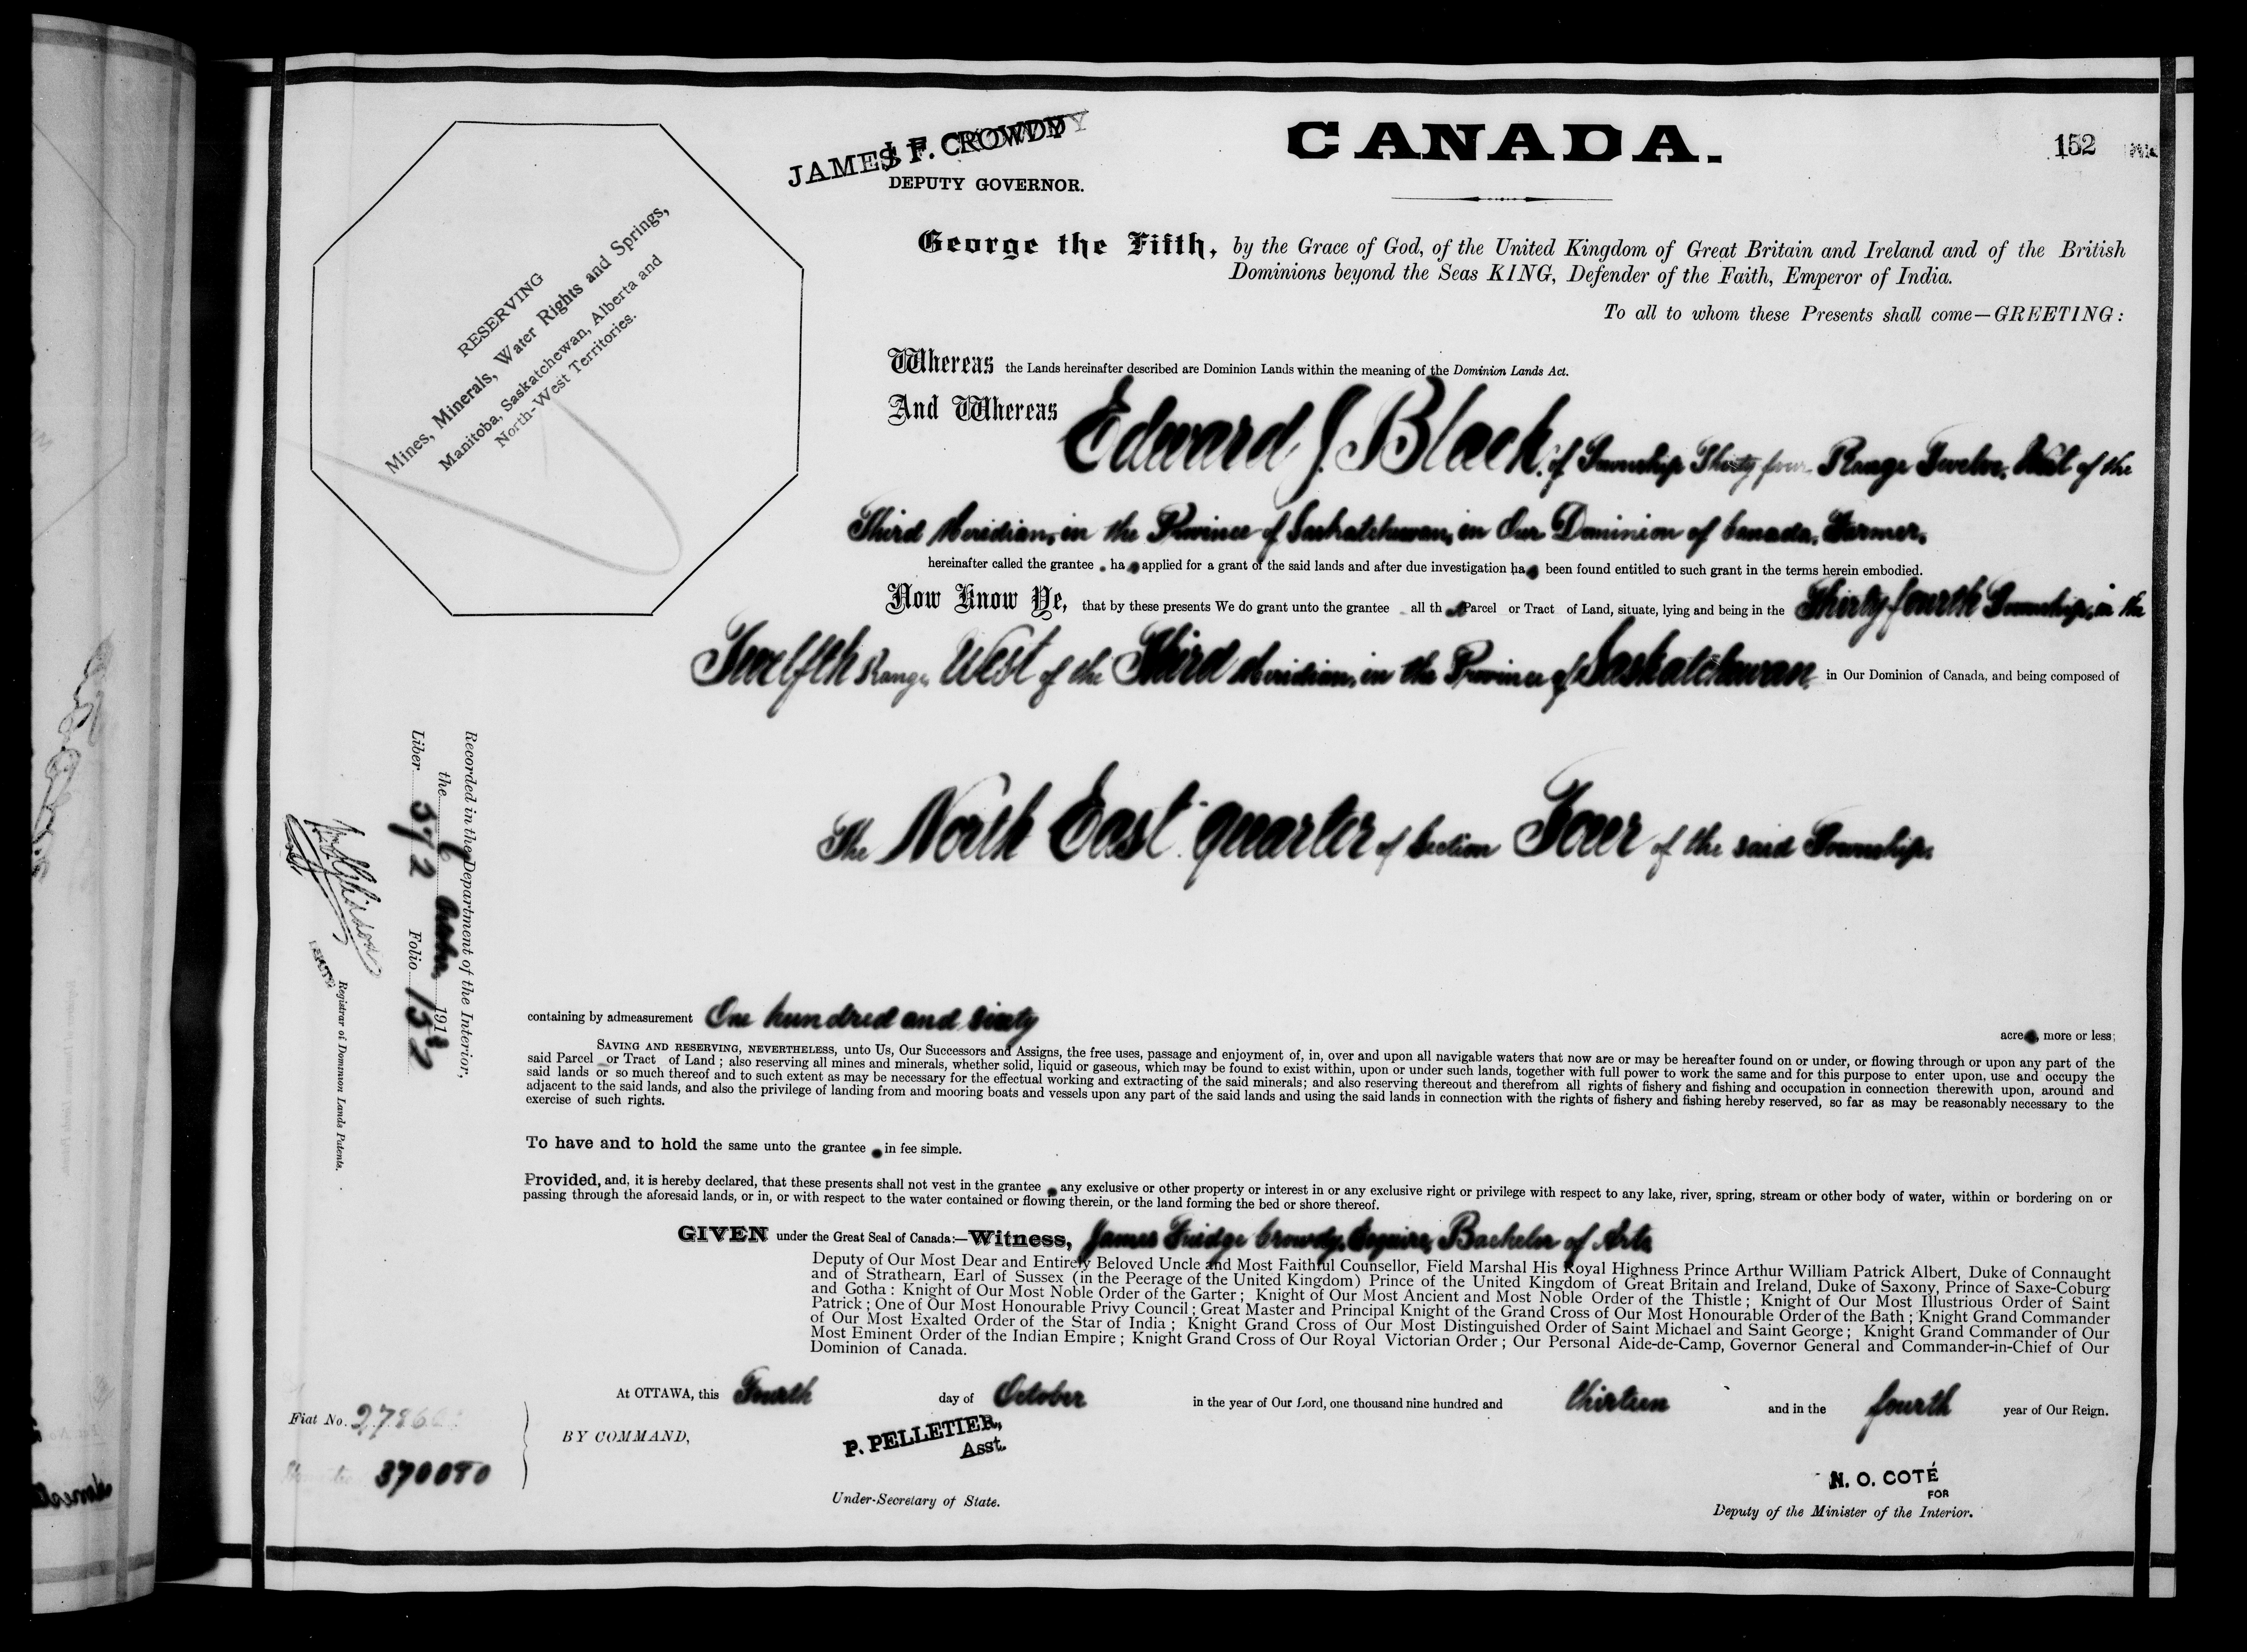 JAMES F. CROWDY
DEPUTY GOVERNOR.
CANADA.
152
RESERVING
Mines, Minerals, Water Rights and Springs,
Manitoba, Saskatchewan, Alberta and
North-West Territories.
George the Fifth, by the Grace of God, of the United Kingdom of Great Britain and Ireland and of the British
Dominions beyond the Seas KING, Defender of the Faith, Emperor of India.
To all to whom these Presents shall come—GREETING:
Whereas the Lands hereinafter described are Dominion Lands within the meaning of the Dominion Lands Act.
And Whereas Edward J. Black, of Township Thirty four Range Twelve, West of the
Third Meridian, in the Province of Saskatchewan, in Our Dominion of Canada, Farmer,
hereinafter called the grantee , ha s applied for a grant of the said lands and after due investigation ha s been found entitled to such grant in the terms herein embodied.
Now Know Ye, that by these presents We do grant unto the grantee all th at Parcel or Tract of Land, situate, lying and being in the Thirty fourth Township, in the
Twelfth Range, West of the Third Meridian, in the Province of Saskatchewan, in Our Dominion of Canada, and being composed of
The North East quarter of Section Four of the said Township.
containing by admeasurement One hundred and sixty
acre s, more or less;
SAVING AND RESERVING, NEVERTHELESS, unto Us, Our Successors and Assigns, the free uses, passage and enjoyment of, in, over and upon all navigable waters that now are or may be hereafter found on or under, or flowing through or upon any part of the
said Parcel or Tract of Land ; also reserving all mines and minerals, whether solid, liquid or gaseous, which may be found to exist within, upon or under such lands, together with full power to work the same and for this purpose to enter upon, use and occupy the
said lands or so much thereof and to such extent as may be necessary for the effectual working and extracting of the said minerals; and also reserving thereout and therefrom all rights of fishery and fishing and occupation in connection therewith upon, around and
adjacent to the said lands, and also the privilege of landing from and mooring boats and vessels upon any part of the said lands and using the said lands in connection with the rights of fishery and fishing hereby reserved, so far as may be reasonably necessary to the
exercise of such rights.
To have and to hold the same unto the grantee in fee simple.
Provided, and, it is hereby declared, that these presents shall not vest in the grantee any exclusive or other property or interest in or any exclusive right or privilege with respect to any lake, river, spring, stream or other body of water, within or bordering on or
passing through the aforesaid lands, or in, or with respect to the water contained or flowing therein, or the land forming the bed or shore thereof.
GIVEN under the Great Seal of Canada:—Witness, James Fuidge Crowdy, Esquire, Bachelor of Arts
Deputy of Our Most Dear and Entirely Beloved Uncle and Most Faithful Counsellor, Field Marshal His Royal Highness Prince Arthur William Patrick Albert, Duke of Connaught
and of Strathearn, Earl of Sussex (in the Peerage of the United Kingdom) Prince of the United Kingdom of Great Britain and Ireland, Duke of Saxony, Prince of Saxe-Coburg
and Gotha : Knight of Our Most Noble Order of the Garter ; Knight of Our Most Ancient and Most Noble Order of the Thistle ; Knight of Our Most Illustrious Order of Saint
Patrick ; One of Our Most Honourable Privy Council ; Great Master and Principal Knight of the Grand Cross of Our Most Honourable Order of the Bath ; Knight Grand Commander
of Our Most Exalted Order of the Star of India ; Knight Grand Cross of Our Most Distinguished Order of Saint Michael and Saint George ; Knight Grand Commander of Our
Most Eminent Order of the Indian Empire ; Knight Grand Cross of Our Royal Victorian Order ; Our Personal Aide-de-Camp, Governor General and Commander-in-Chief of Our
Dominion of Canada.
At OTTAWA, this Fourth day of October in the year of Our Lord, one thousand nine hundred and thirteen and in the fourth year of Our Reign.
BY COMMAND,
P. PELLETIER,
Asst.
Under-Secretary of State.
N. O. COTÉ
FOR
Deputy of the Minister of the Interior.
Recorded in the Department of the Interior,
the 6 October 1913
Liber 572 Folio 152
DEPUTY
Registrar of Dominion Lands Patents.
Fiat No.
370080